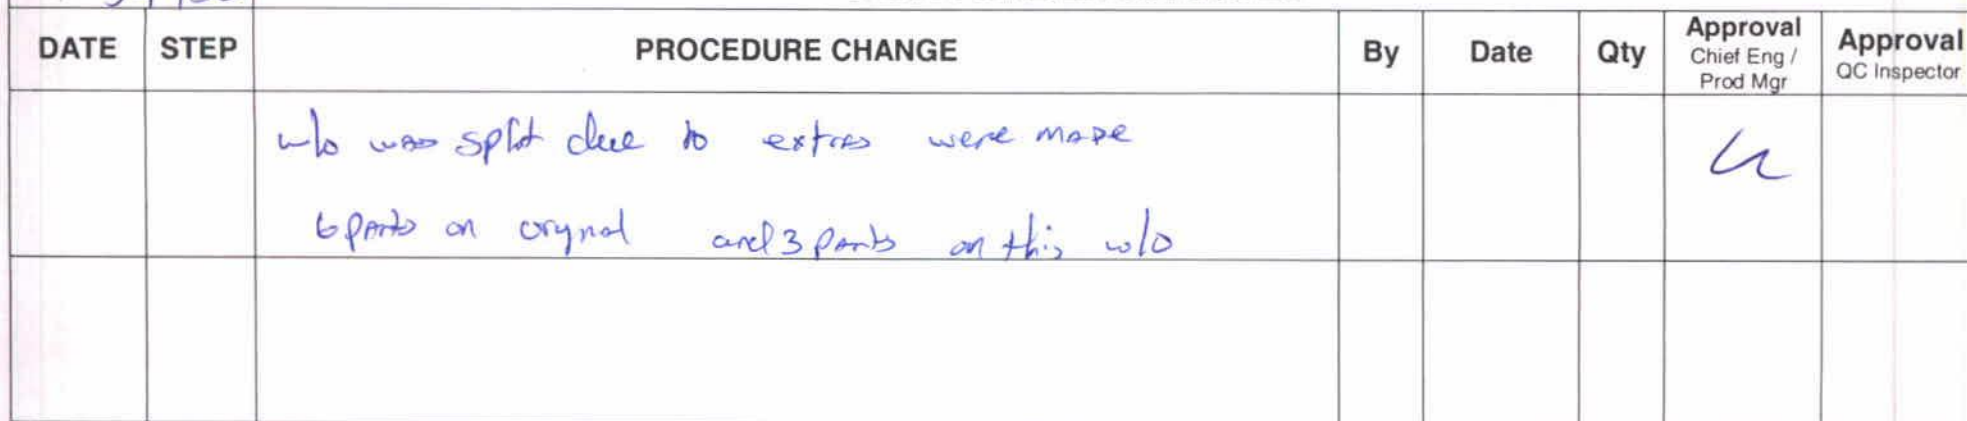 DATE STEP PROCEDURE CHANGE By Date Qty Approval Chief Eng / Prod Mgr Approval QC Inspector
w/o was split due to extras were made
6 parts on orignal and 3 parts on this w/o